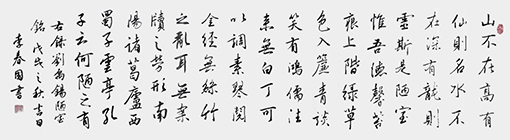 山不在高有
仙則名水不
在深有龍則
靈斯是陋室
惟吾德馨苔
痕上階緑草
色入簾青談
笑有鴻儒往
来無白丁可
以調素琴閱
金經無絲竹
之亂耳無案
牘之勞形南
陽諸葛廬西
蜀子雲亭孔
子云何陋之有
右錄劉禹錫陋室
銘戊戌之秋吉日
李春國書